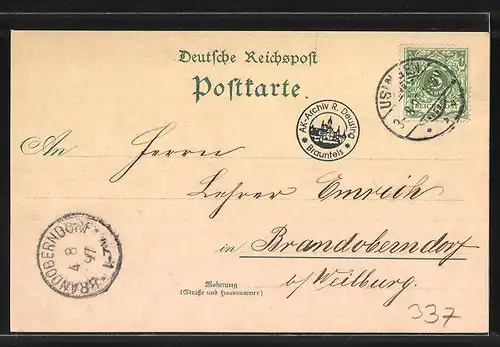 Deutsche Reichspost
Postkarte
USINGEN
AK-Archiv R. Deusing
Braunfels
An Herrn
Lehrer Emrich
in Brandoberndorf
b/ Weilburg.
BRANDOBERNDORF
8
4
97
Wohnung
(Straße und Hausnummer)
337